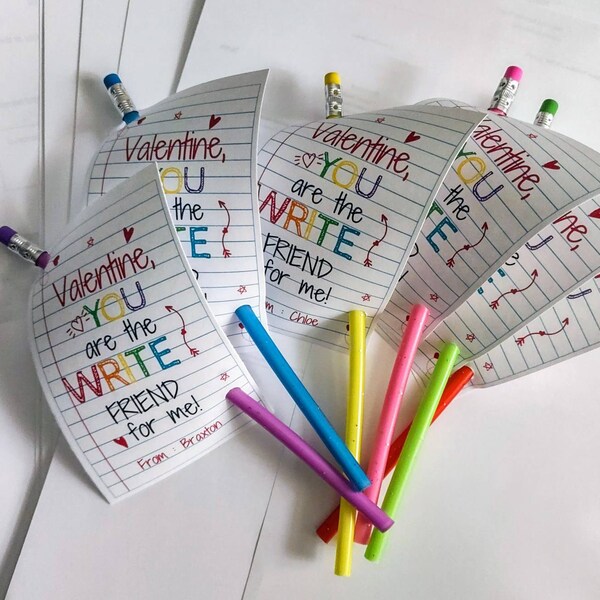 Valentine,
YOU
are the
WRITE
FRIEND
for me!
From : Braxton
Valentine,
YOU
the
TE
Valentine,
YOU
are the
WRITE
FRIEND
for me!
: Chloe
Valentine,
YOU
the
TE